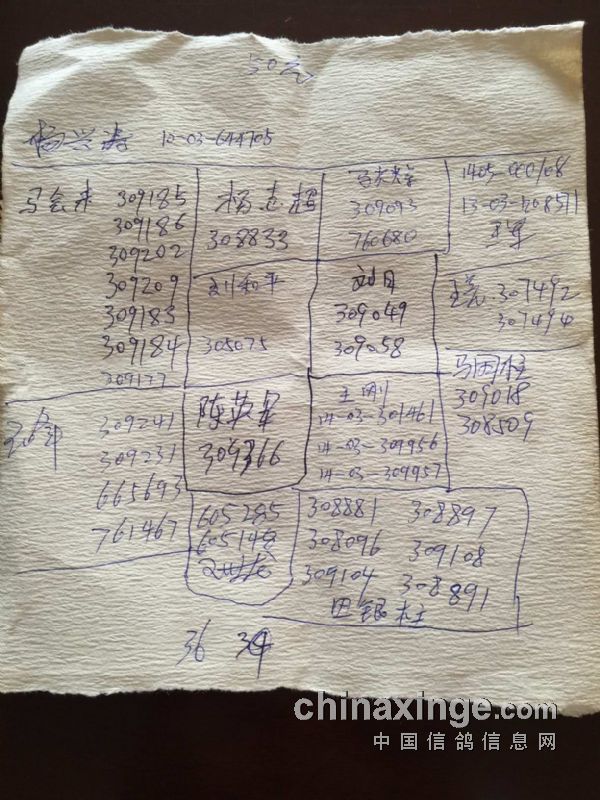 50元
杨兴涛 10-03-644705
马金来 309185
309186
309202
309209
309183
309184
309177
杨志超
308833
309093
760680
1405-000108
13-03-1208511
王军
刘和平
305075
刘日
309049
309058
307492
307494
309241
309231
665693
761467
陈英军
309366
王刚
14-03-301461
14-03-309956
14-03-309957
马因柱
309018
308509
605285
605148
308881 308897
308096 309108
309104 308891
田银柱
36
chinaxinge.com
中国信鸽信息网